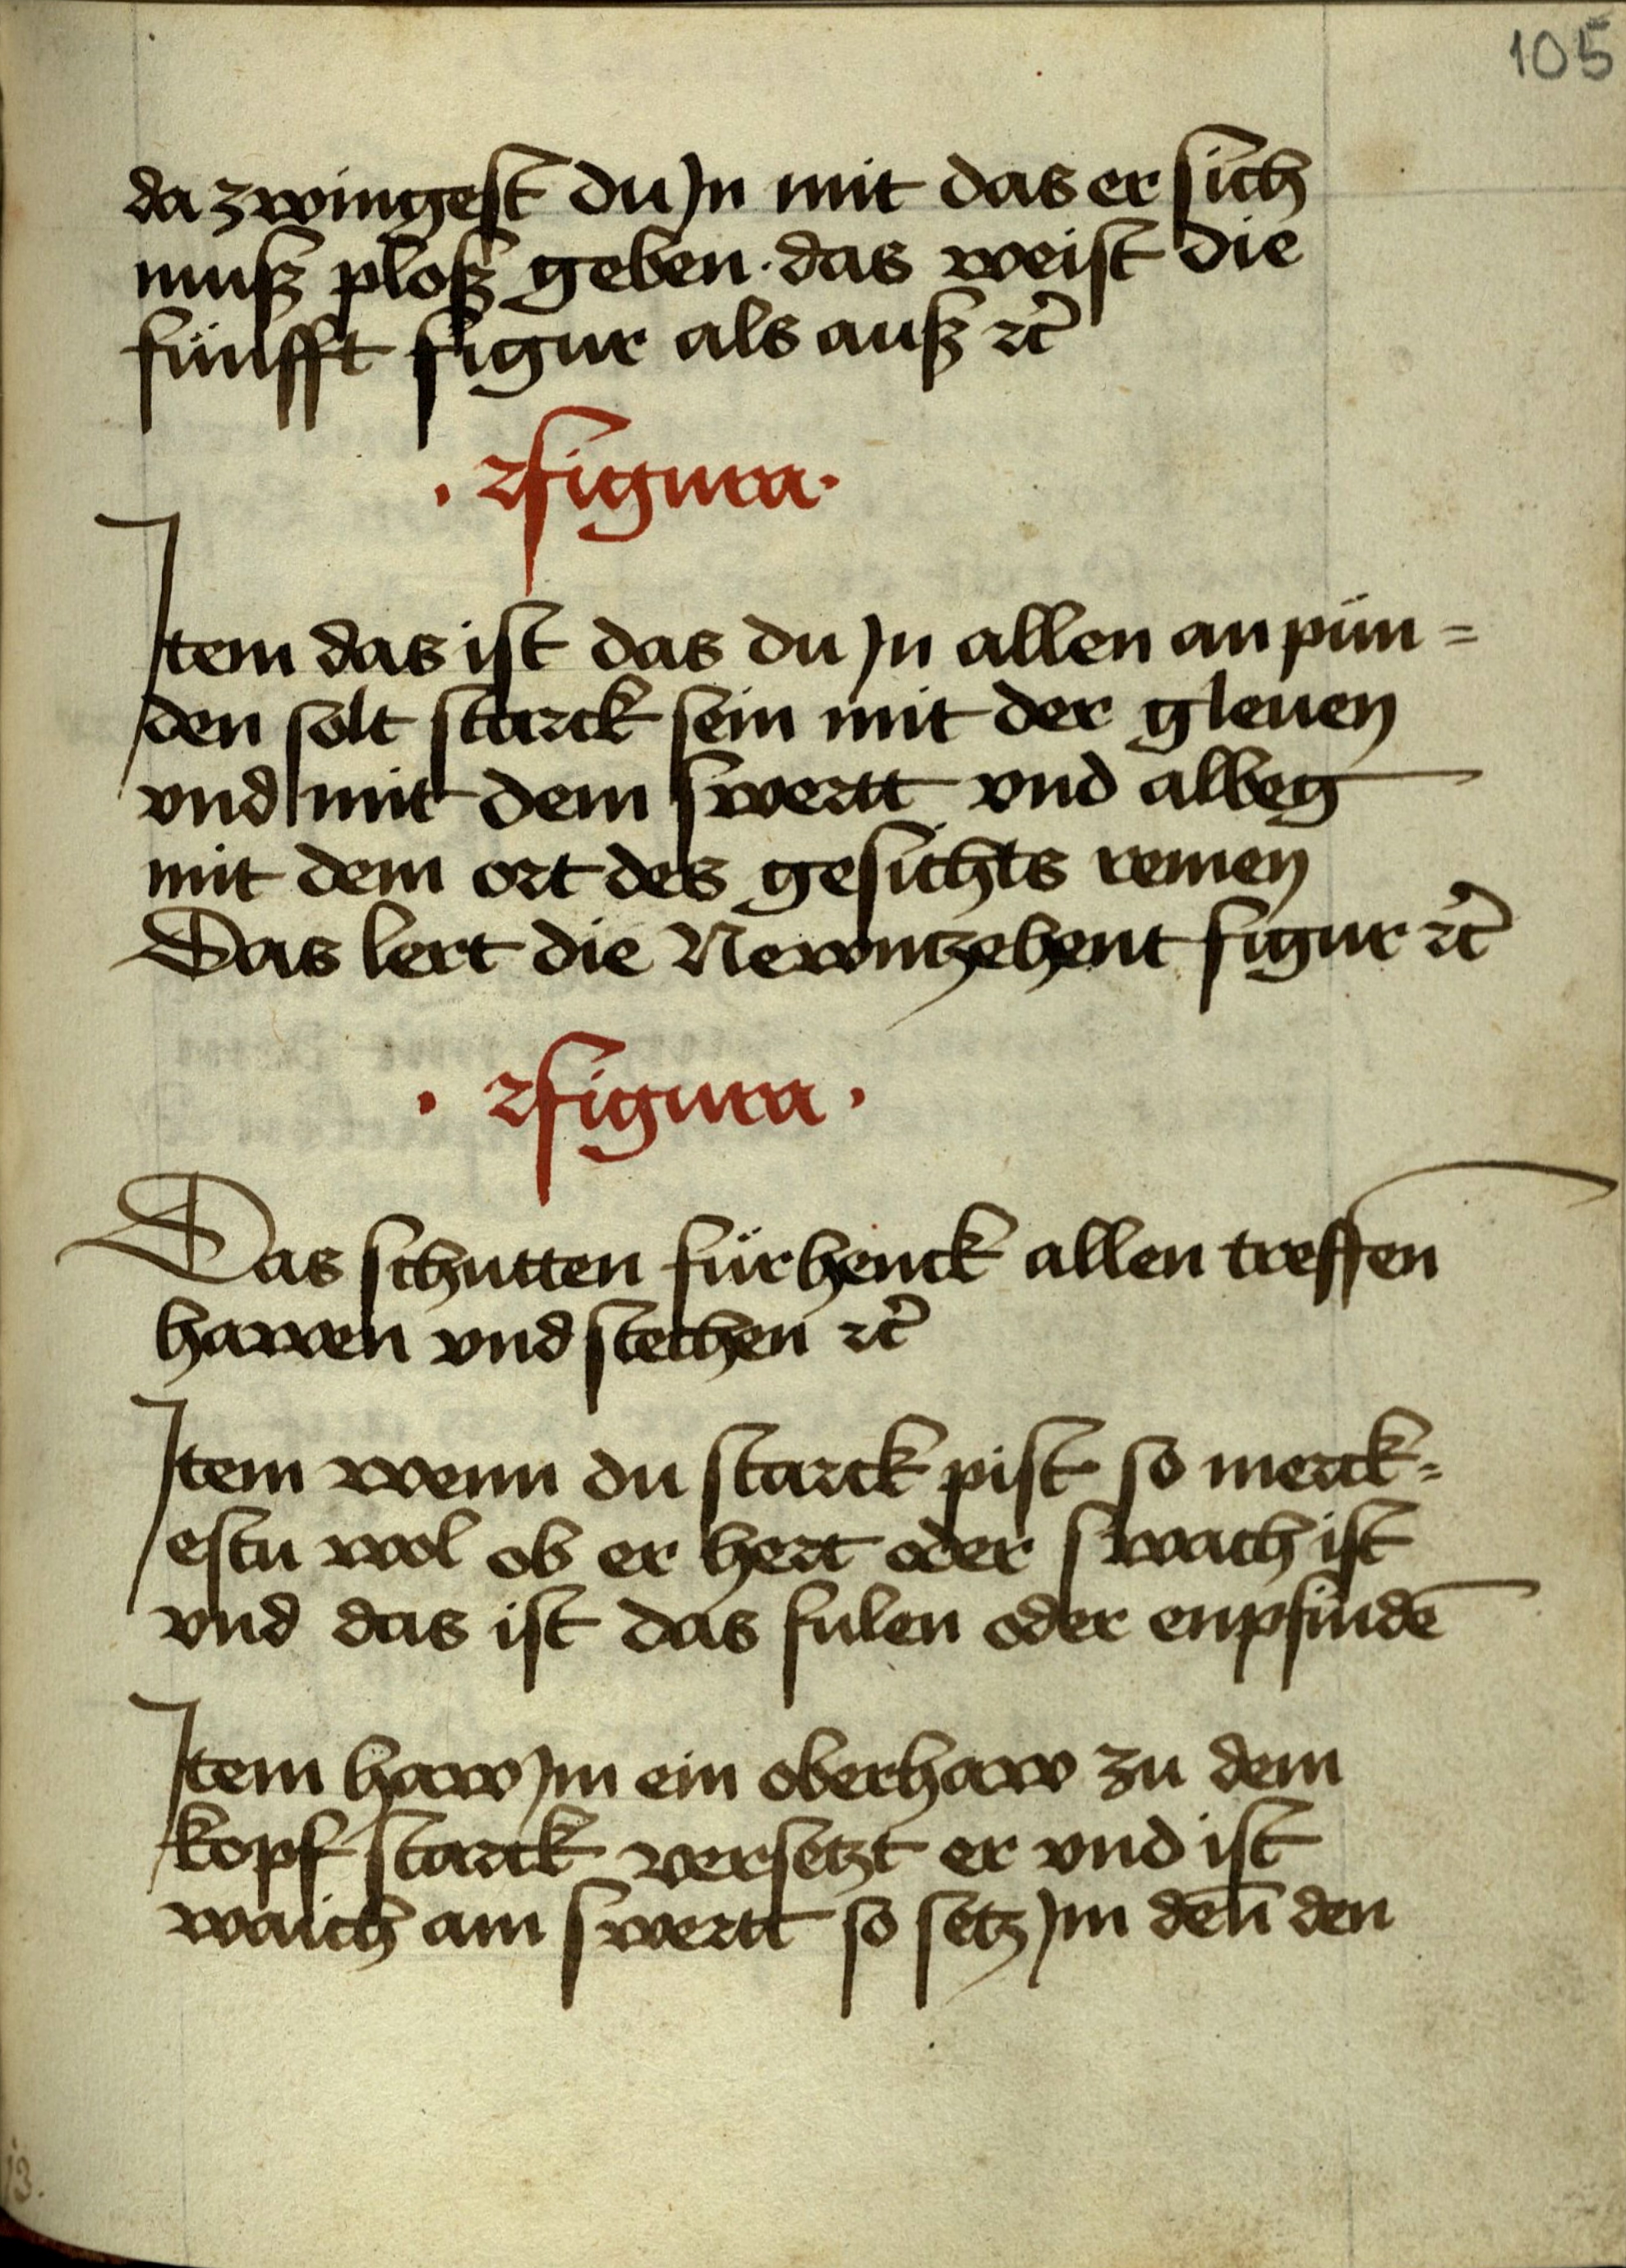 105
da zwingest du Jn mit das er sich
muß ploß geben · das weist die
fünfft figur als auß rc̄
· 2figura ·
Jtem das ist das du Jn allen an pün =
den solt starck sein mit der gleuen
vnd mit dem swertt vnd albeg
mit dem ort des gesichts remen
Das lert die Newntzehent figur rc̄
· 2figura ·
Das schutten für henck allen treffen
hawen vnd stechen rc̄
Jtem wenn du starck pist so merck =
estu wol ob er hert oder swach ist
vnd das ist das fulen oder enpfindē
Jtem haw Jm ein oberhaw zu dem
kopf starck versetzt er vnd ist
waich am swertt so setz Jm den̄ den